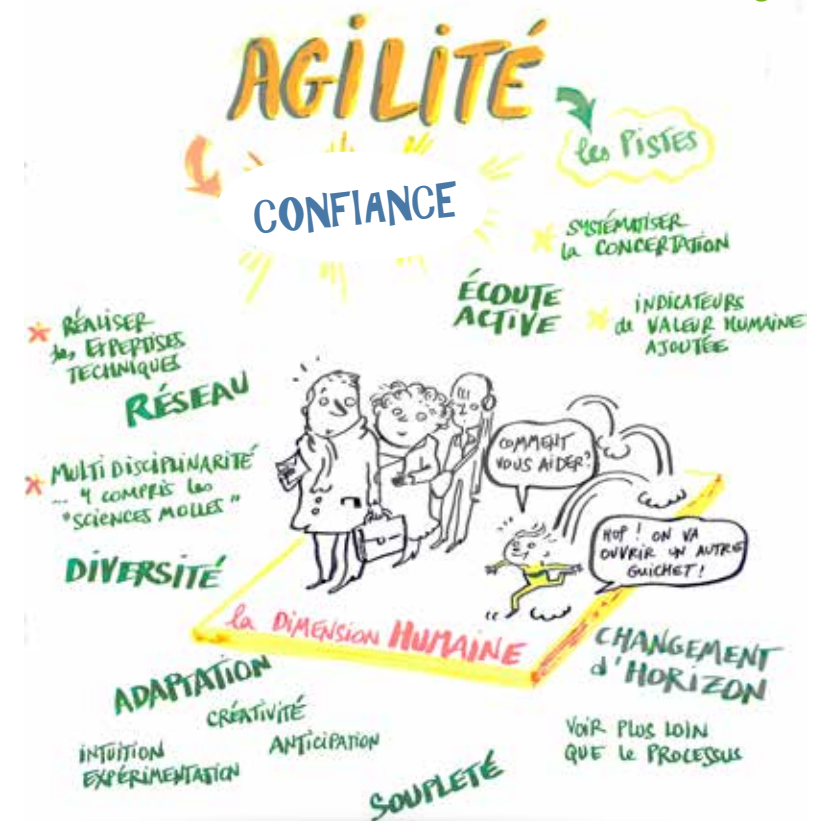 AGiLiTÉ
les PiSTES
CONFIANCE
SYSTÉMATISER
la CONCERTATION
ÉCOUTE
ACTIVE
iNDiCATEURS
de VALEUR HUMAINE
AJOUTÉE
RÉALISER
des EXPERTISES
TECHNIQUES
RÉSEAU
MULTiDiSCiPLiNARiTÉ
... Y COMPRiS les
"SCiENCES MOLLES"
DiVERSiTÉ
COMMENT
VOUS AiDER?
HOP ! ON VA
OUVRIR UN AUTRE
GUiCHET !
la DiMENSiON HUMAiNE
CHANGEMENT
d'HORiZON
VOiR PLUS LOiN
QUE le PROCESSUS
ADAPTATiON
CRÉATiViTÉ
ANTiCiPATiON
iNTUiTiON
EXPÉRiMENTATiON
SOUPLETÉ